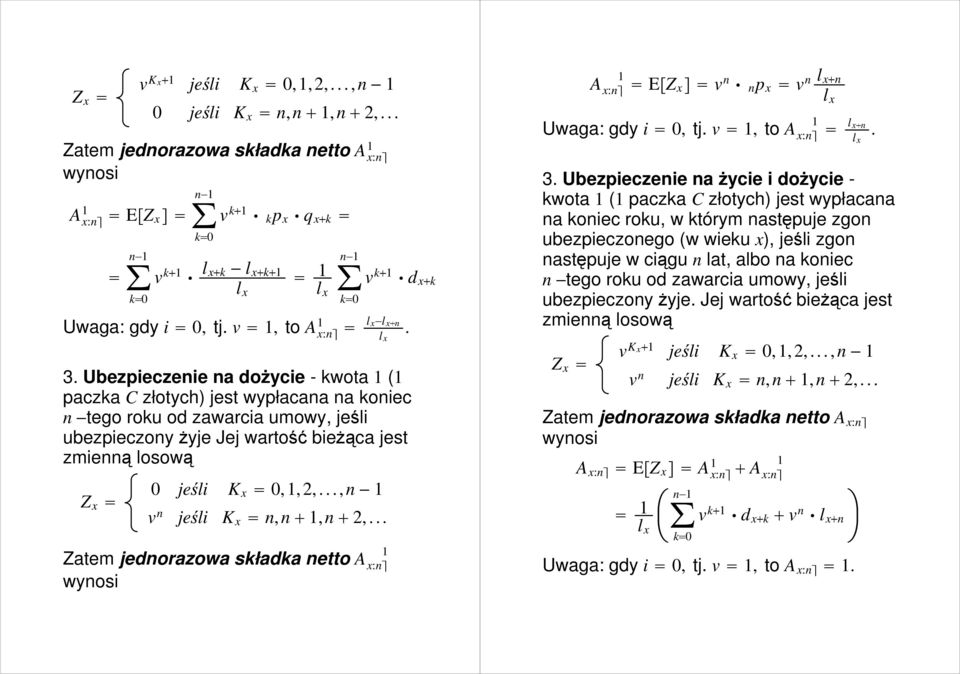 Z_x = { v^{K_x+1} jeśli K_x = 0,1,2,…,n − 1
0 jeśli K_x = n,n + 1,n + 2,…
Zatem jednorazowa składka netto A^1_{x:n⌉}
wynosi
A^1_{x:n⌉} = E[Z_x] = ∑_{k=0}^{n−1} v^{k+1} • _kp_x • q_{x+k} =
= ∑_{k=0}^{n−1} v^{k+1} • \frac{l_{x+k} − l_{x+k+1}}{l_x} = \frac{1}{l_x} ∑_{k=0}^{n−1} v^{k+1} • d_{x+k}
Uwaga: gdy i = 0, tj. v = 1, to A^1_{x:n⌉} = \frac{l_x−l_{x+n}}{l_x}.
3. Ubezpieczenie na dożycie - kwota 1 (1
paczka C złotych) jest wypłacana na koniec
n –tego roku od zawarcia umowy, jeśli
ubezpieczony żyje Jej wartość bieżąca jest
zmienną losową
Z_x = { 0 jeśli K_x = 0,1,2,…,n − 1
v^n jeśli K_x = n,n + 1,n + 2,…
Zatem jednorazowa składka netto A_{x:n⌉}^{1}
wynosi
A_{x:n⌉}^{1} = E[Z_x] = v^n • _np_x = v^n \frac{l_{x+n}}{l_x}
Uwaga: gdy i = 0, tj. v = 1, to A_{x:n⌉}^{1} = \frac{l_{x+n}}{l_x}.
3. Ubezpieczenie na życie i dożycie -
kwota 1 (1 paczka C złotych) jest wypłacana
na koniec roku, w którym następuje zgon
ubezpieczonego (w wieku x), jeśli zgon
następuje w ciągu n lat, albo na koniec
n –tego roku od zawarcia umowy, jeśli
ubezpieczony żyje. Jej wartość bieżąca jest
zmienną losową
Z_x = { v^{K_x+1} jeśli K_x = 0,1,2,…,n − 1
v^n jeśli K_x = n,n + 1,n + 2,…
Zatem jednorazowa składka netto A_{x:n⌉}
wynosi
A_{x:n⌉} = E[Z_x] = A^1_{x:n⌉} + A_{x:n⌉}^{1}
= \frac{1}{l_x} ( ∑_{k=0}^{n−1} v^{k+1} • d_{x+k} + v^n • l_{x+n} )
Uwaga: gdy i = 0, tj. v = 1, to A_{x:n⌉} = 1.